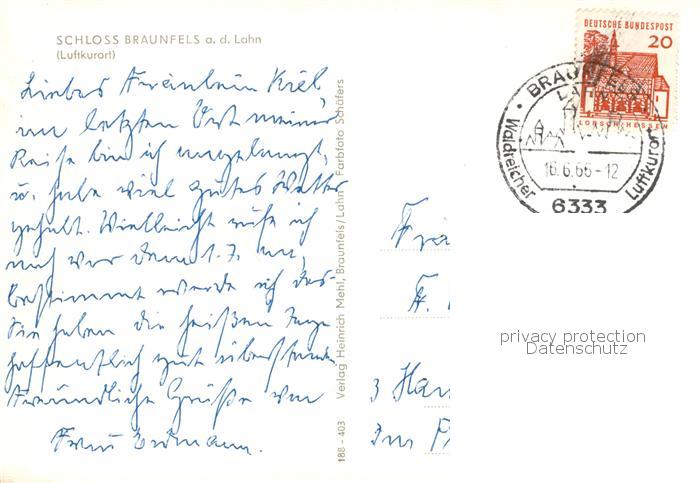 SCHLOSS BRAUNFELS a. d. Lahn
(Luftkurort)
Liebes Fräulein Kiel
im letzten Ort meiner
Reise bin ich angelangt,
u. habe viel gutes Wetter
gehabt. Vielleicht rufe ich
noch vor dem 1.7. an,
bestimmt werde ich das.
Sie haben die heißen Tage
hoffentlich gut überstanden
Freundliche Grüße von
Frau Erdmann.
Verlag Heinrich Mehl, Braunfels/Lahn Farbfoto Schäfers
188 - 403
DEUTSCHE BUNDESPOST
20
LORSCH/HESSEN
BRAUNFELS
LAHN
16.6.66-12
Waldreicher Luftkurort
6333
Frä
3 Han
privacy protection
Datenschutz